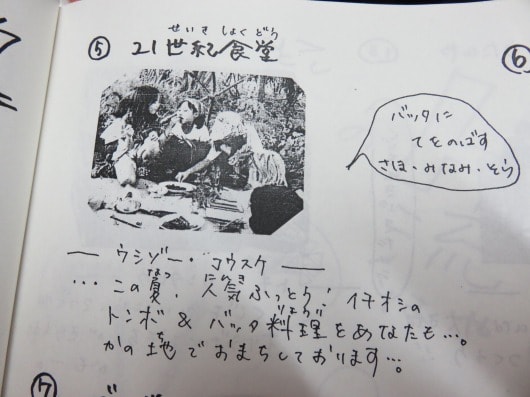 ⑤ 21世紀食堂
せいきしょくどう
⑥
バッタに
てをのばす
さほ・みなみ・そら
— ウシゾー・コウスケ —
・・・この夏、人気ふっとう! イチオシの
なつ にんき
トンボ&バッタ料理をあなたも・・・。
りょうり
かの地でおまちしております・・・。
⑦